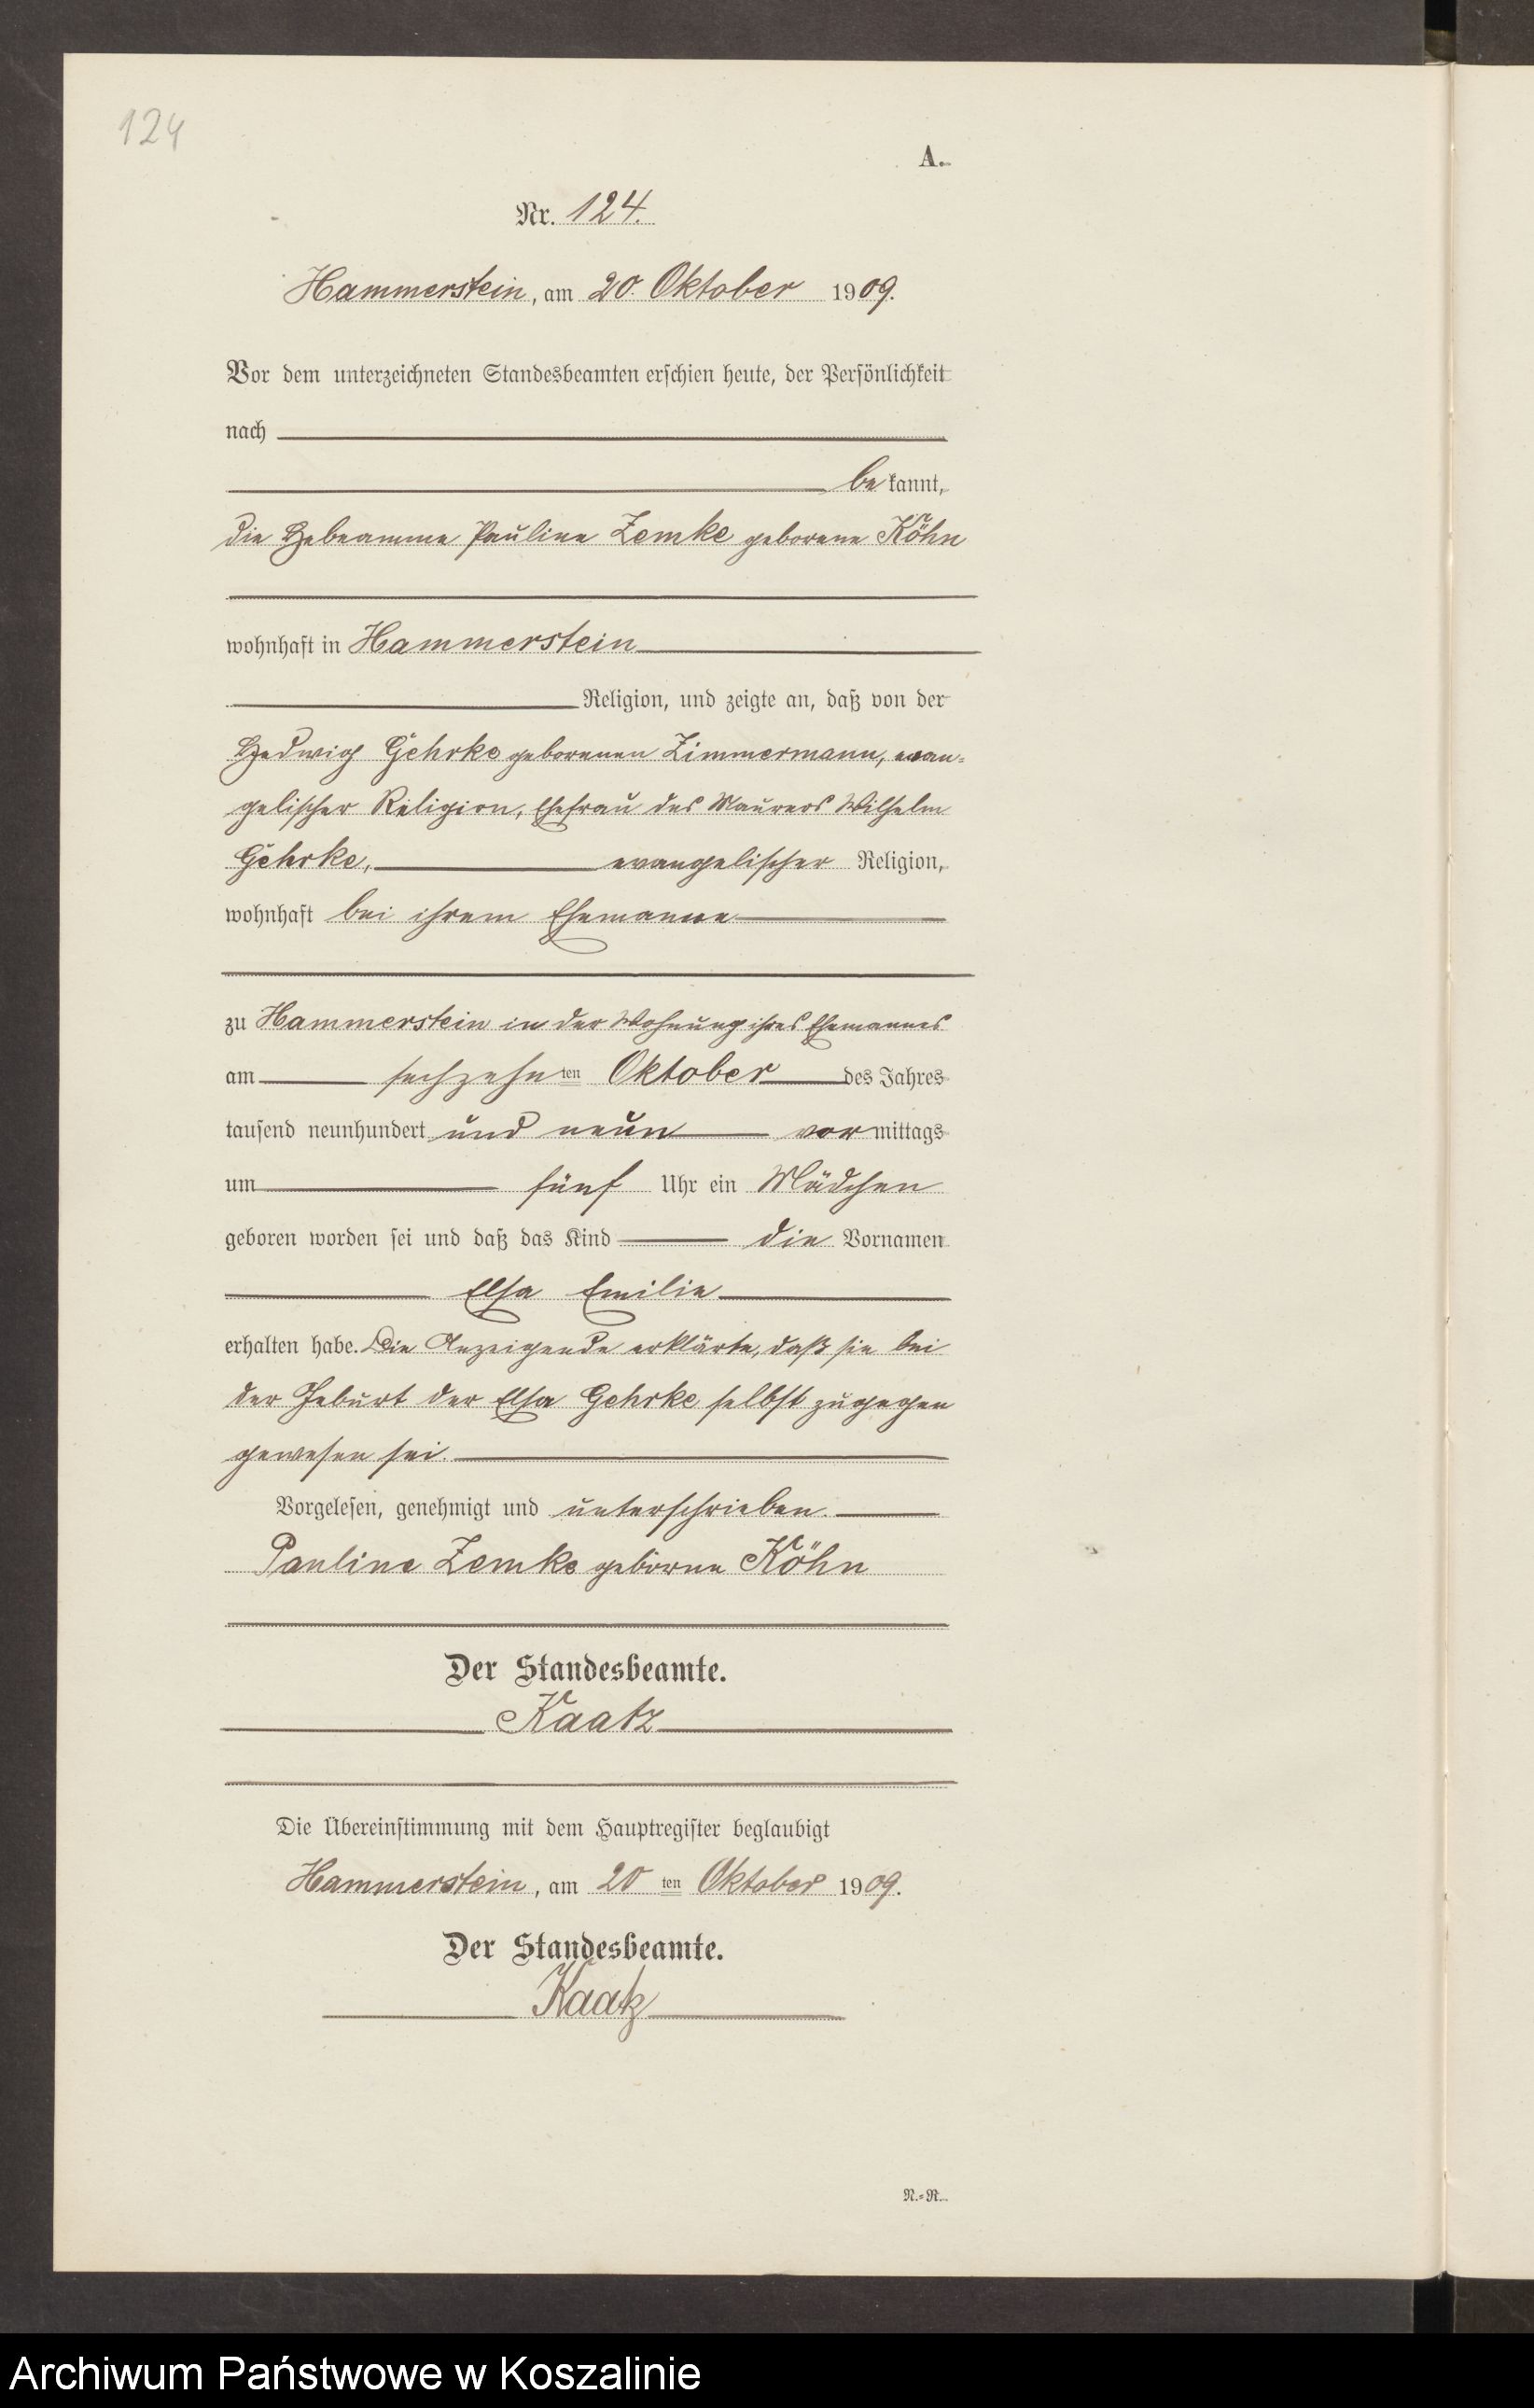 124
A.
Nr. 124.
Hammerstein, am 20. Oktober 1909.
Vor dem unterzeichneten Standesbeamten erschien heute, der Persönlichkeit
nach
be kannt,
die Hebeamme Pauline Zemke geborene Köhn
wohnhaft in Hammerstein
Religion, und zeigte an, daß von der
Hedwig Gehrke geborenen Zimmermann, evan=
gelischer Religion, Ehefrau des Maurers Wilhelm
Gehrke, evangelischer Religion,
wohnhaft bei ihrem Ehemanne
zu Hammerstein in der Wohnung ihres Ehemannes
am sechzehn ten Oktober des Jahres
tausend neunhundert und neun vor mittags
um fünf Uhr ein Mädchen
geboren worden sei und daß das Kind die Vornamen
Elsa Emilie
erhalten habe. Die Anzeigende erklärte, daß sie bei
der Geburt der Elsa Gehrke selbst zugegen
gewesen sei.
Vorgelesen, genehmigt und unterschrieben.
Pauline Zemke geborne Köhn
Der Standesbeamte.
Kaatz
Die Übereinstimmung mit dem Hauptregister beglaubigt
Hammerstein, am 20 ten Oktober 1909.
Der Standesbeamte.
Kaatz
N.=R.
Archiwum Państwowe w Koszalinie